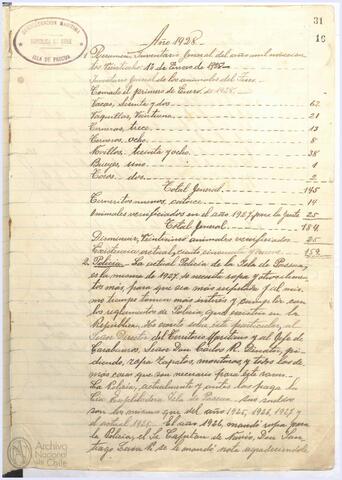 31
16
SUBDELEGACION MARITIMA
REPUBLICA DE CHILE
ISLA DE PASCUA
Año 1928.
1 Resumen, Inventario General del año mil novecien
tos Veintiocho
Inventario General de los animales del Fisco
Tomado el primero de Enero de 1928.
Vacas, Sesenta y dos 62
Vaquillas, Veintiuna 21
Terneras, trece 13
Terneros, ocho 8
Novillos, treinta y ocho 38
Bueyes, uno 1
Toros dos 2
Total General 145
Terneritos nuevos, catorce 14
Animales beneficiados en el año 1927, para la Gente 25
Total General 184
Disminuir, Veinticinco animales beneficiados 25
Existencia actual, ciento cincuenta y nueve 159
2. Policia. La actual Policia de la Isla de Pascua,
es la misma de 1927. Se necesita ropa y otros elemen
tos más, para que sea más respetada y al mis
mo tiempo tomen más interés y cumplir con
los reglamentos de Policia, que existen en la
República. De cuenta sobre este particular, al
Señor Director del Territorio Maritimo y al Jefe de
Carabineros, Señor Don Carlos M.
diendo, ropa Zapatos, monturas, y todas las de
más cosas que son necesario para este ramo.
La Policia, actualmente y antes las paga la
Cia Explotadora Isla de Pascua. Sus sueldos
son los mismos que del año 1925, 1926, 1927 y
el actual 1928. El año 1926, mandó ropa para
la Policia, el Sr Capitan de Navio, Don San
tiago se le mandó nota agradeciendole
Archivo
Nacional
de Chile